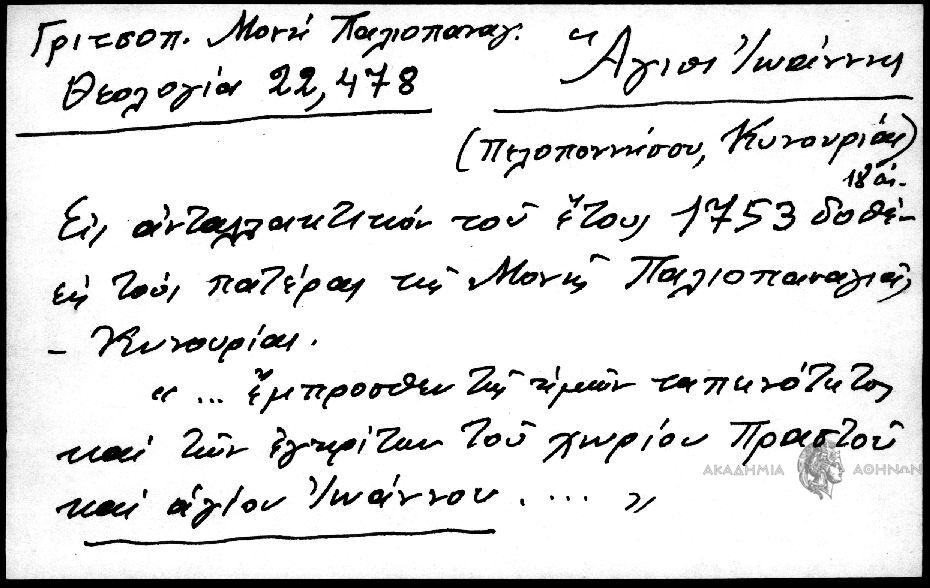 Γριτσοπ. Μονή Παλιοπαναγ.
Θεολογία 22,478
Ἅγιοι Ἰωάννης
(Πελοποννήσου, Κυνουρίας)
18 αἰ.
Εἰς ἀνταλλακτικόν τοῦ ἔτους 1753 δοθέν
εἰς τούς πατέρας τῆς Μονῆς Παλιοπαναγιᾶς
- Κυνουρίας.
"... ἔμπροσθεν τῆς ἡμῶν ταπεινότητος
καί τῶν ἐγκρίτων τοῦ χωρίου Πραστοῦ
καί ἁγίου Ἰωάννου . ... "
ΑΚΑΔΗΜΙΑ ΑΘΗΝΩΝ